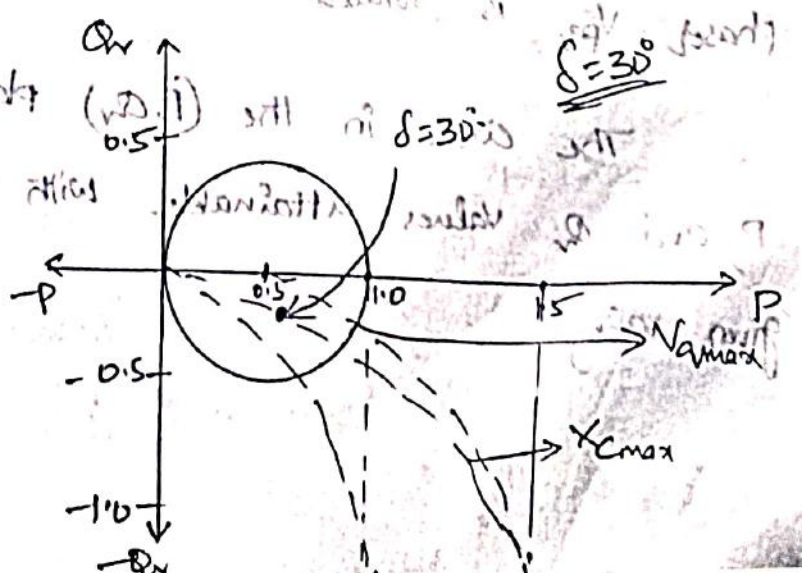 Qr
δ=30°
0.5
δ=30°
-P
0.5
1.0
1.5
P
Vqmax
-0.5
Xcmax
-1.0
-Qr